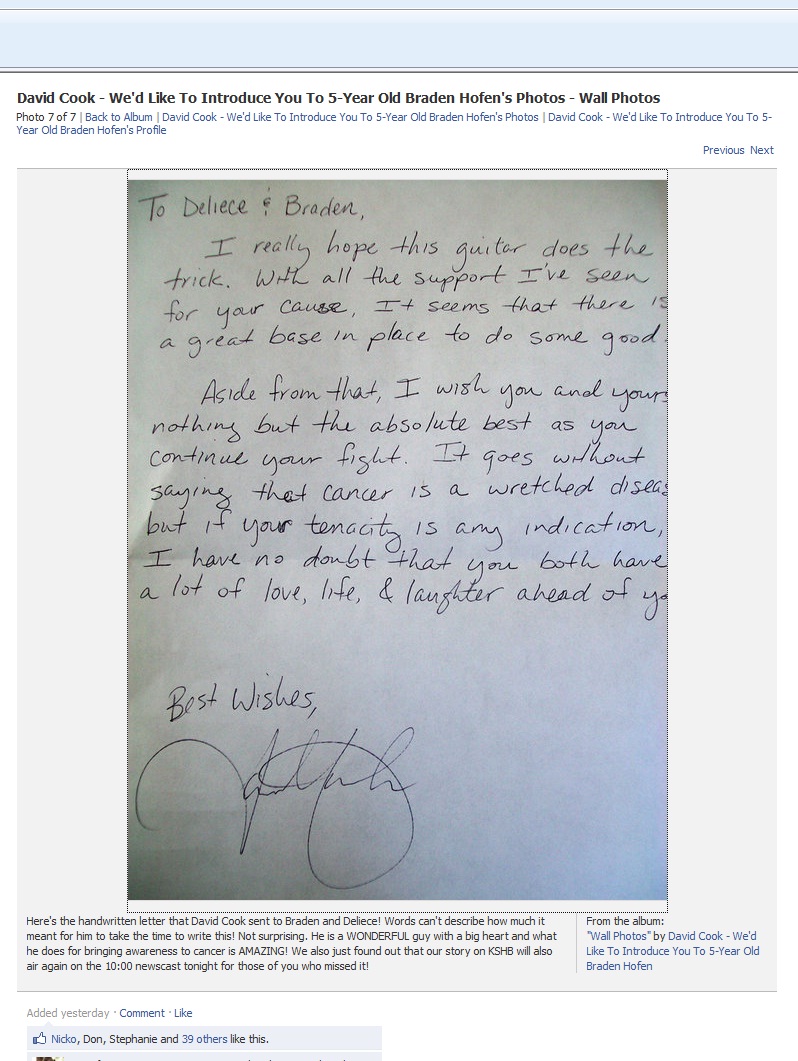 David Cook - We'd Like To Introduce You To 5-Year Old Braden Hofen's Photos - Wall Photos
Photo 7 of 7 | Back to Album | David Cook - We'd Like To Introduce You To 5-Year Old Braden Hofen's Photos | David Cook - We'd Like To Introduce You To 5-
Year Old Braden Hofen's Profile
Previous Next
To Deliece & Braden,
I really hope this guitar does the
trick. With all the support I've seen
for your cause, It seems that there is
a great base in place to do some good.
Aside from that, I wish you and yours
nothing but the absolute best as you
continue your fight. It goes without
saying that cancer is a wretched diseas
but if your tenacity is any indication,
I have no doubt that you both have
a lot of love, life, & laughter ahead of yo
Best Wishes,
Here's the handwritten letter that David Cook sent to Braden and Deliece! Words can't describe how much it
meant for him to take the time to write this! Not surprising. He is a WONDERFUL guy with a big heart and what
he does for bringing awareness to cancer is AMAZING! We also just found out that our story on KSHB will also
air again on the 10:00 newscast tonight for those of you who missed it!
From the album:
"Wall Photos" by David Cook - We'd
Like To Introduce You To 5-Year Old
Braden Hofen
Added yesterday · Comment · Like
Nicko, Don, Stephanie and 39 others like this.